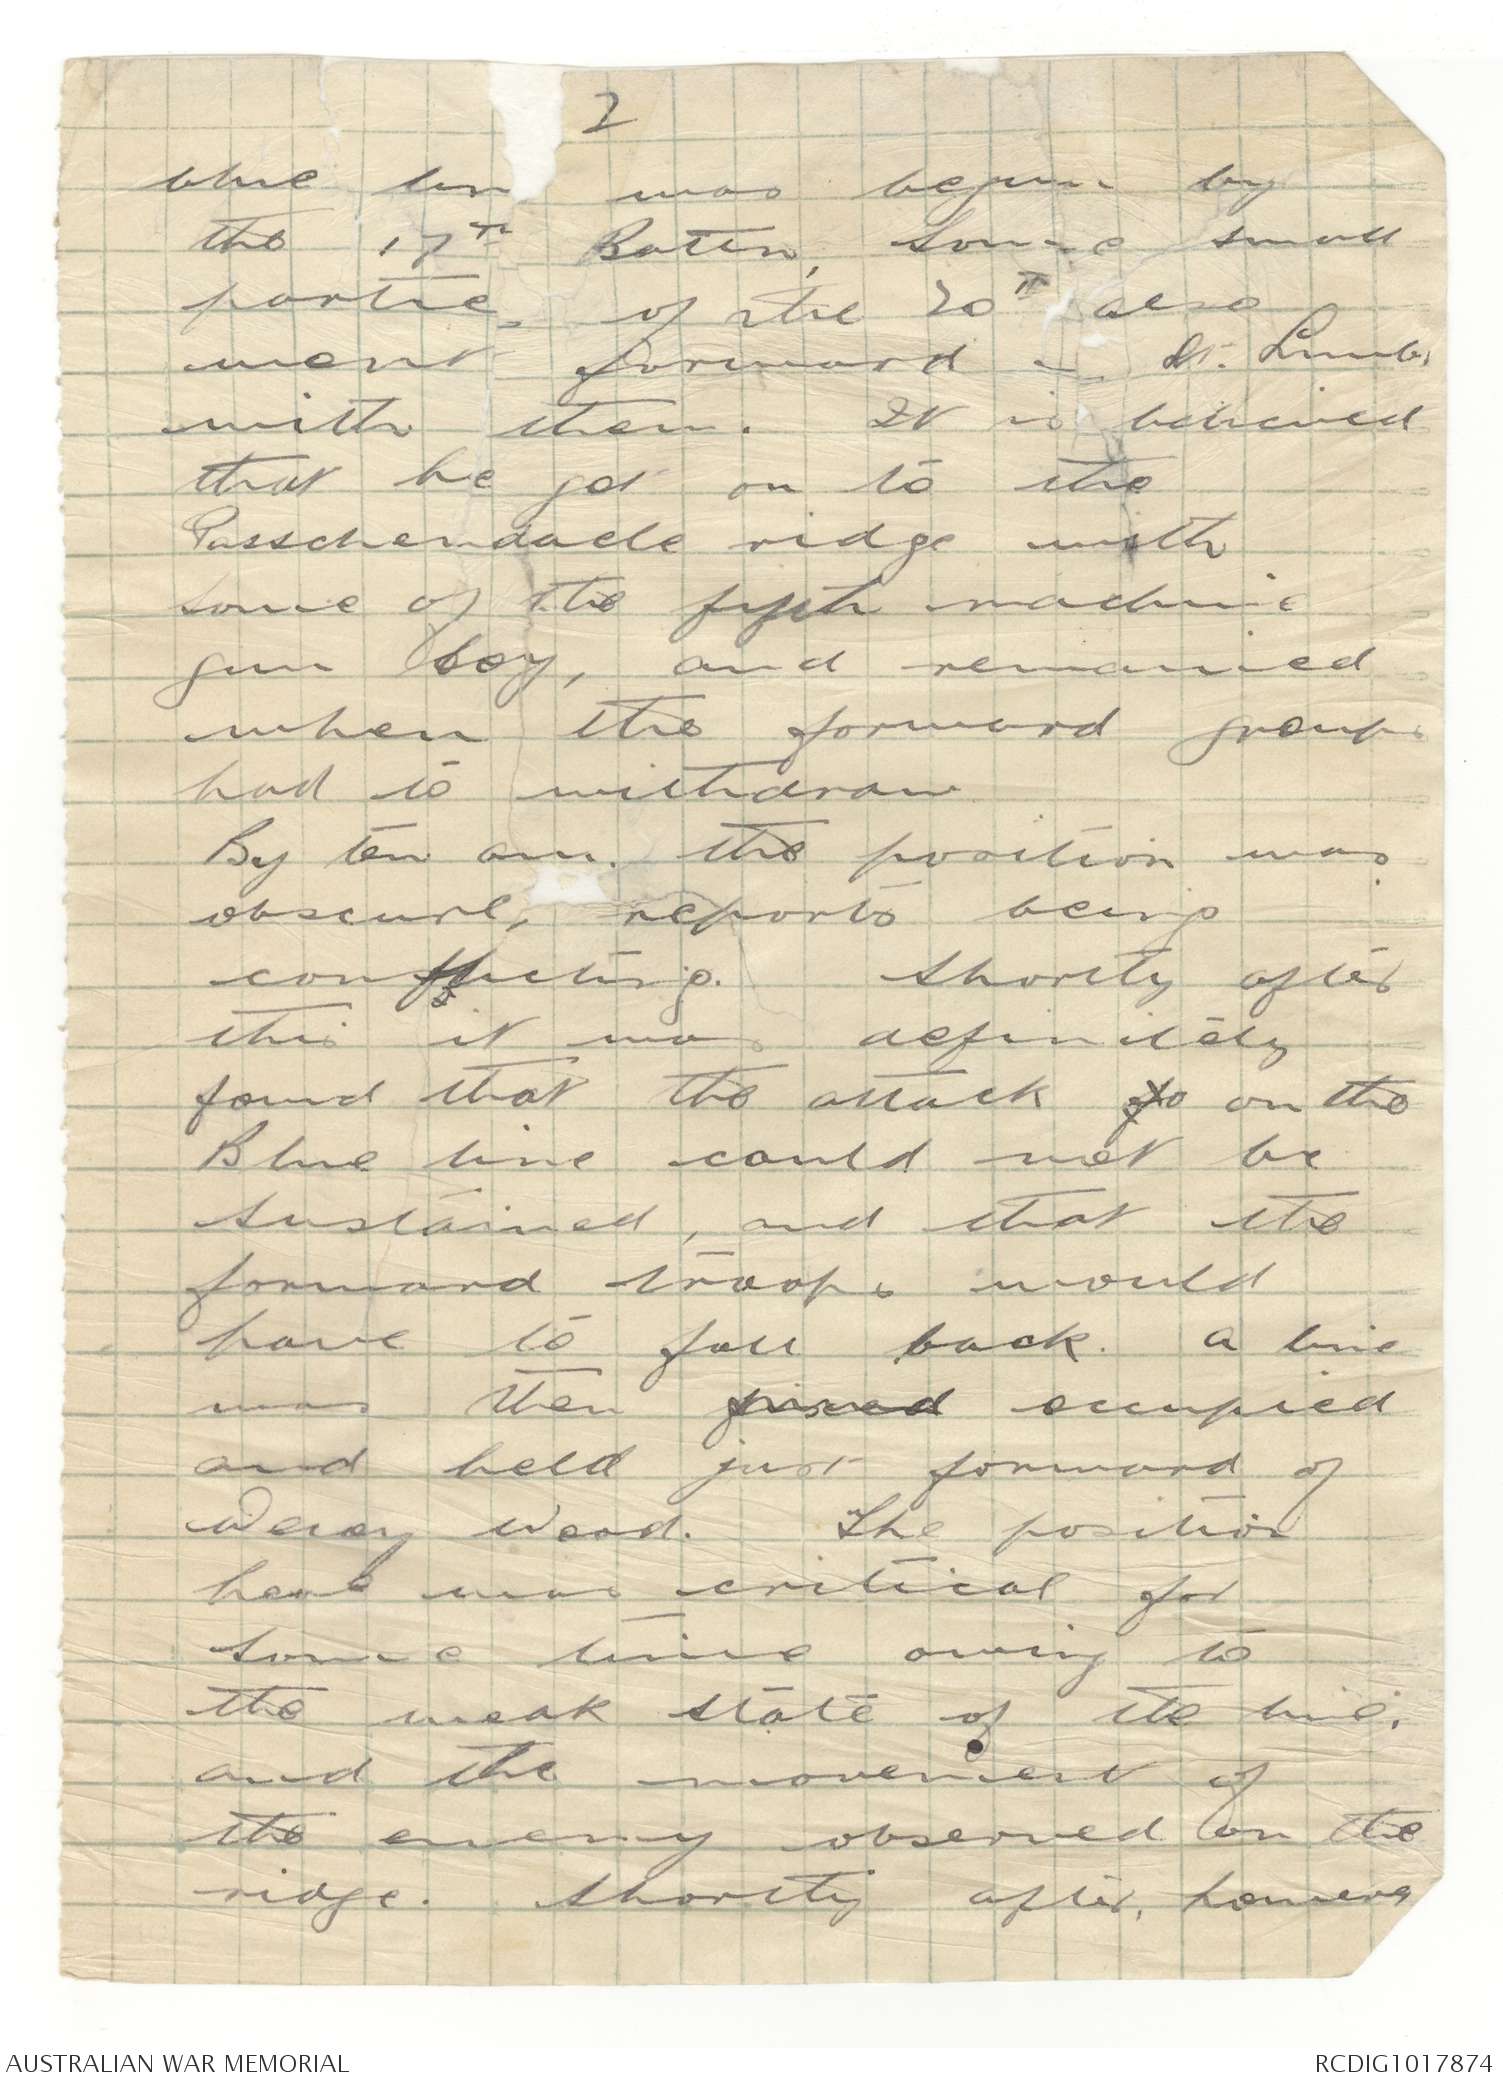 2
blue line was begun by
the 17th Battn, some small
parties of the 20th also
went forward Lt. Lumb,
with them. It is believed
that he got on to the
Passchendaele ridge with
some of the fifth machine
gun Coy, and remained
when the forward groups
had to withdraw
By ten am. the position was
obscure, reports being
conflicting. Shortly after
this it was definitely
found that the attack on the
Blue line could not be
sustained, and that the
forward troops would
have to fall back. A line
was then occupied
and held just forward of
Wood. The position
here was critical for
some time owing to
the weak state of the line,
and the movement of
the enemy observed on the
ridge. Shortly after, however
AUSTRALIAN WAR MEMORIAL
RCDIG1017874